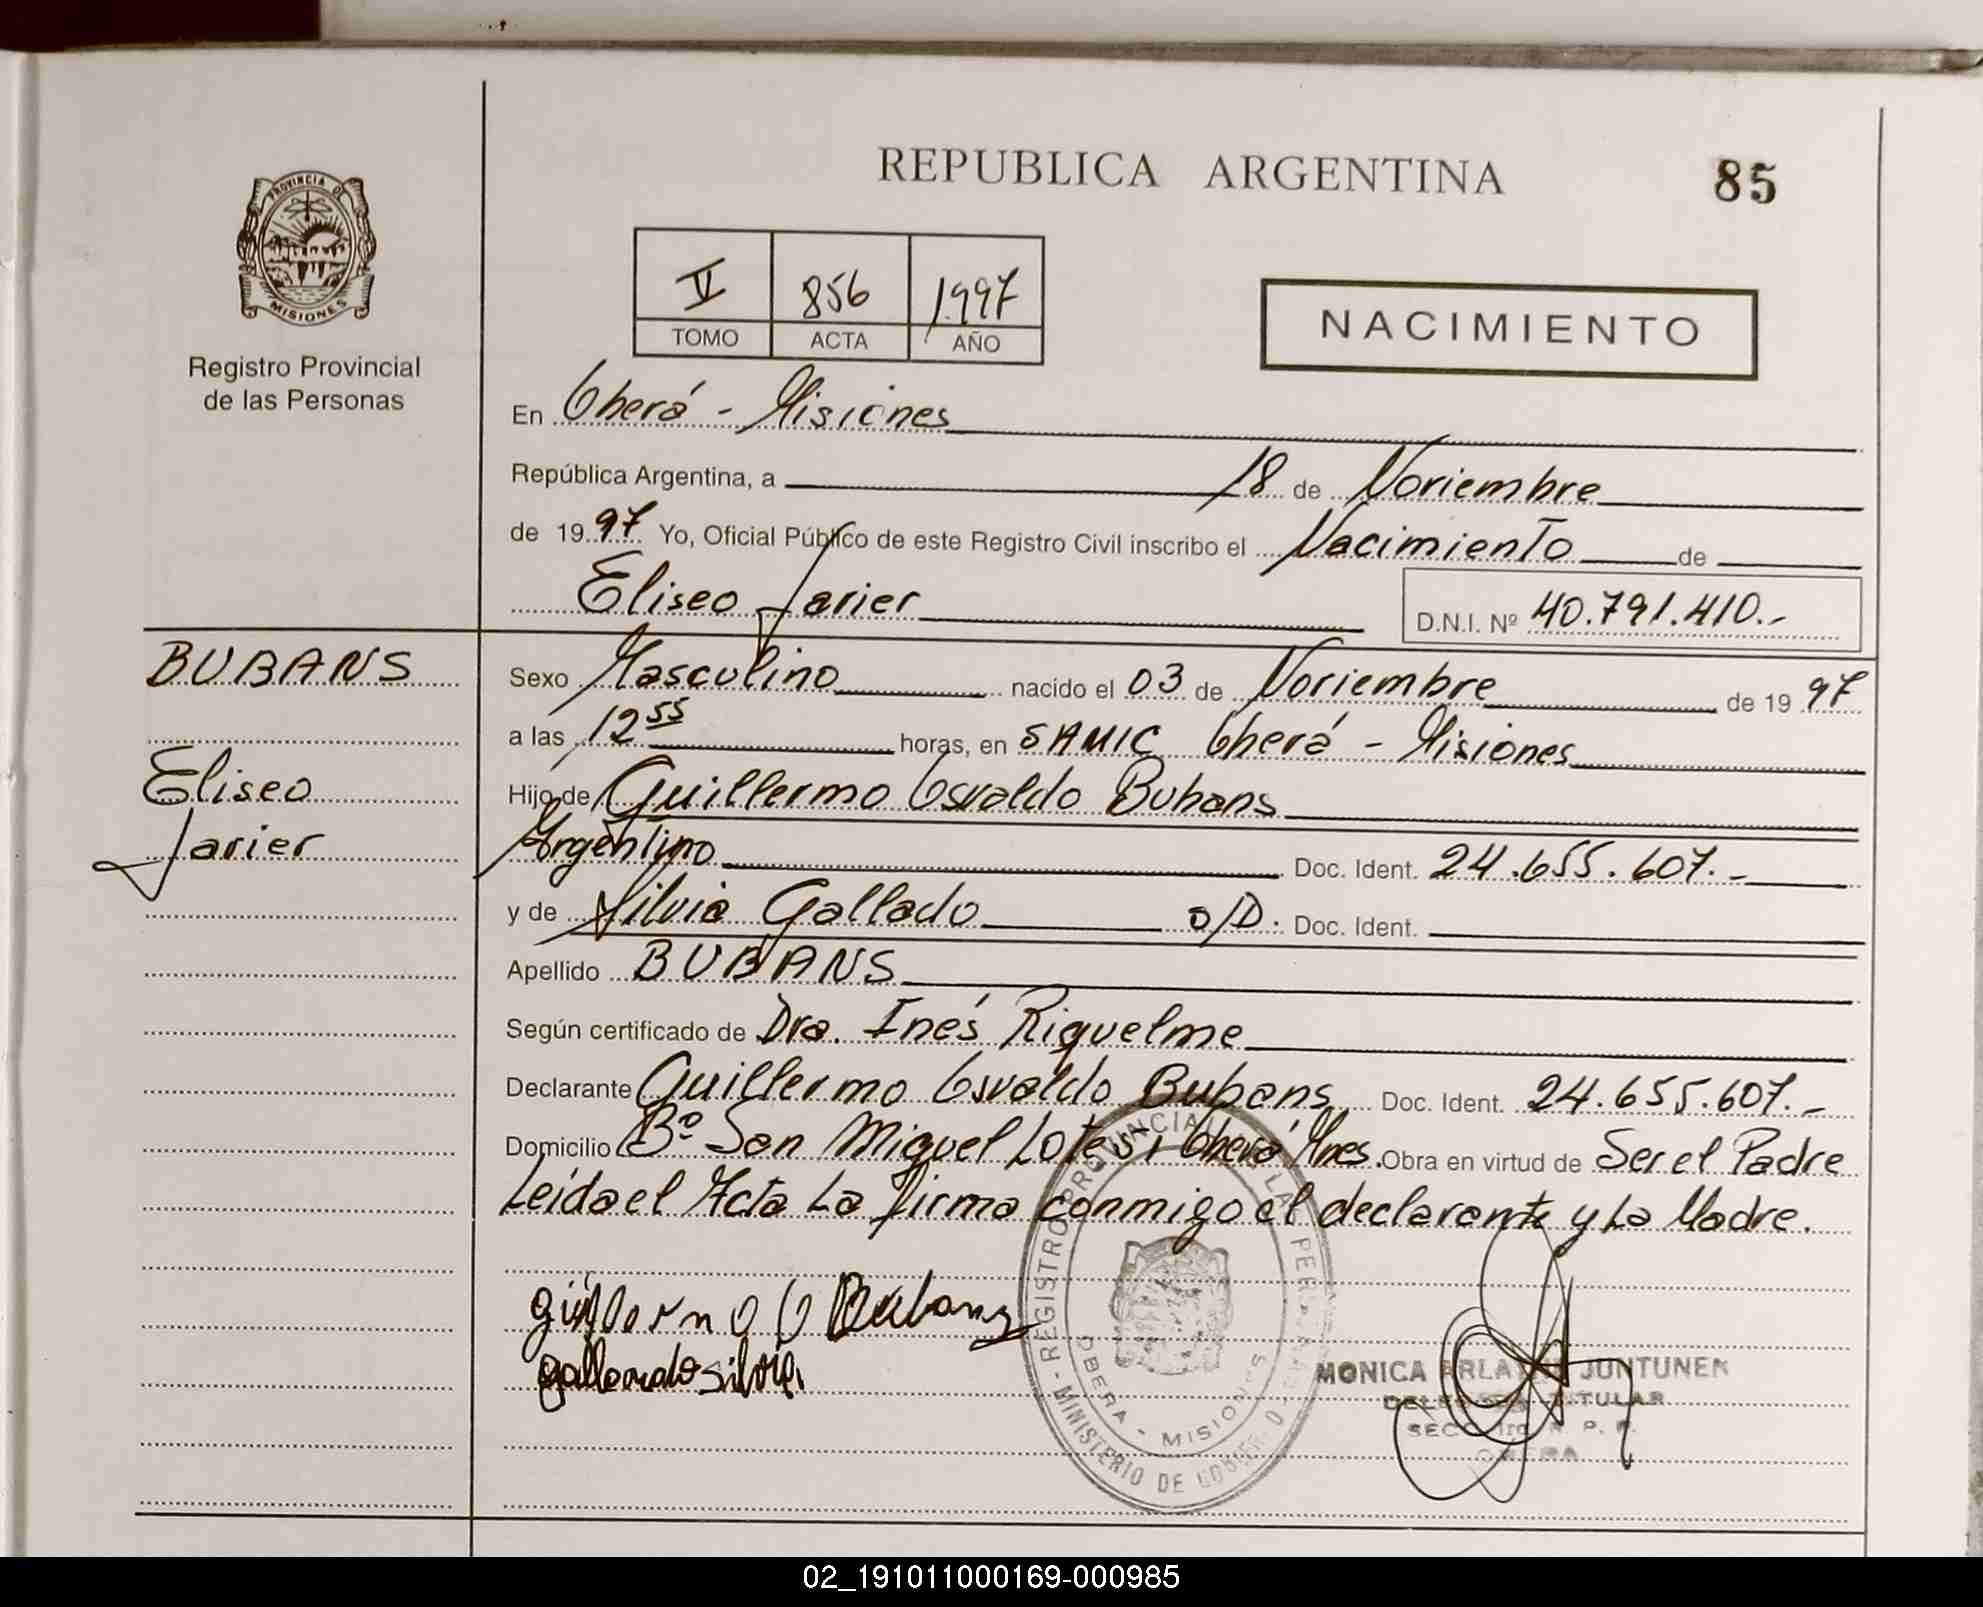 REPUBLICA ARGENTINA
85
PROVINCIA DE
MISIONES
Registro Provincial
de las Personas
V 856 1997
TOMO ACTA AÑO
NACIMIENTO
En Oberá - Misiones
República Argentina, a 18 de Noviembre
de 1997 Yo, Oficial Público de este Registro Civil inscribo el Nacimiento de
Eliseo Javier D.N.I. Nº 40.791.410.-
BUBANS
Eliseo
Javier
Sexo Masculino nacido el 03 de Noviembre de 1997
a las 12 55 horas, en SAMIC Oberá - Misiones
Hijo de Guillermo Osvaldo Bubans
Argentino Doc. Ident. 24.655.607.-
y de Silvia Gallado s/D. Doc. Ident.
Apellido BUBANS
Según certificado de Dra. Inés Riquelme
Declarante Guillermo Osvaldo Bubans Doc. Ident. 24.655.607.-
Domicilio Bº San Miguel Lote 51 Oberá Mnes. Obra en virtud de Ser el Padre
Leida el Acta La firma conmigo el declarante y La Madre.
guillermo O Bubans
gallardo silvia
REGISTRO PROVINCIAL DE LAS PERSONAS
MINISTERIO DE GOBIERNO
OBERA - MISIONES
MONICA JUNTUNEN
TITULAR
OBERA
02_191011000169-000985